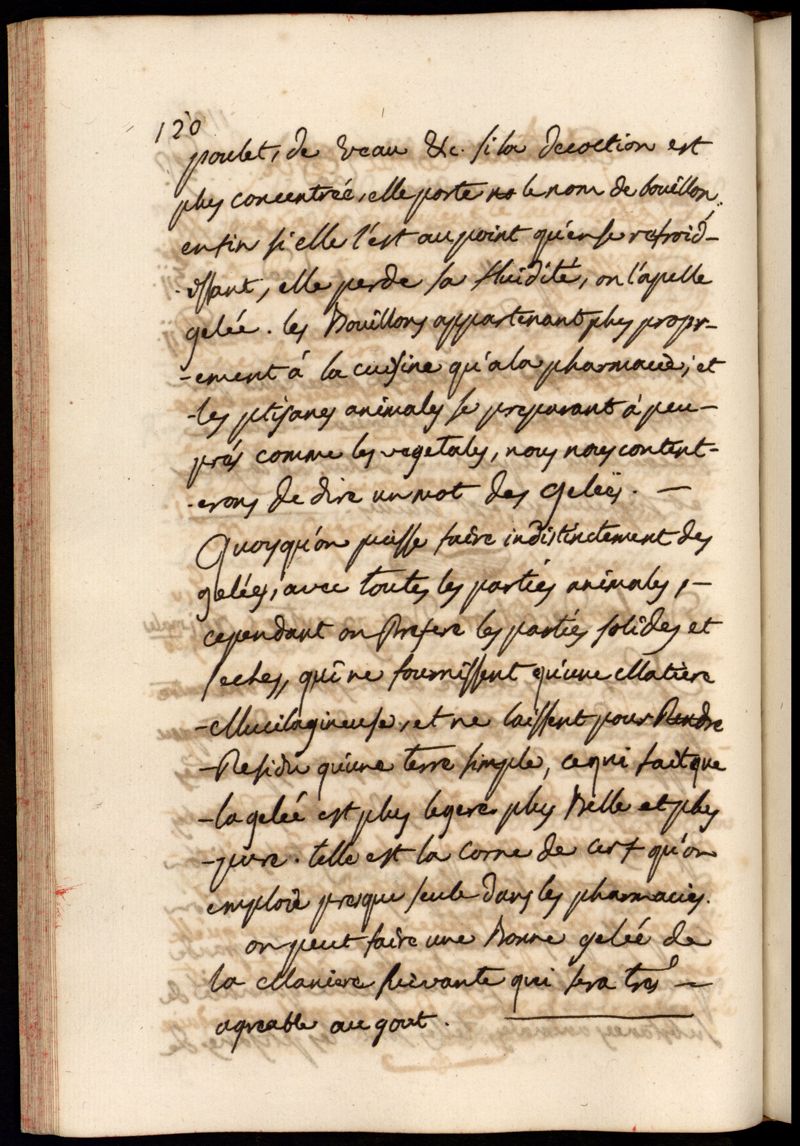 120
poulet, de veau &c. si la decoction est
plus concentrée, elle porte le nom de bouillon.
enfin si elle l'est au point qu'en se refroid-
-issant, elle perde sa fluidité, on l'apelle
gelée. les Bouillons appartenant plus propr-
-ement á la cuisine qu'a la pharmacie; et
-les ptisanes animales se preparant á peu-
prés comme les vegetales, nous nous content-
-erons de dire un mot des Geleës. —
Quoyqu'on puisse faire indistinctement des
gelées, avec toutes les partiés animales, -
cependant on Prefere les partiés solides et
seches, qui ne fournissent qu'une Matiere
-Mucilagineuse, et ne laissent pour Rendre
-Residu qu'une terre simple, ce qui fait que
-la geleé est plus legere plus Belle et plus
-pure. telle est la Corne de cerf qu'on
emploie presque seule dans les pharmacies.
on peut faire une Bonne geleé de
la Maniere suivante qui sera tres -
agreable au gout.